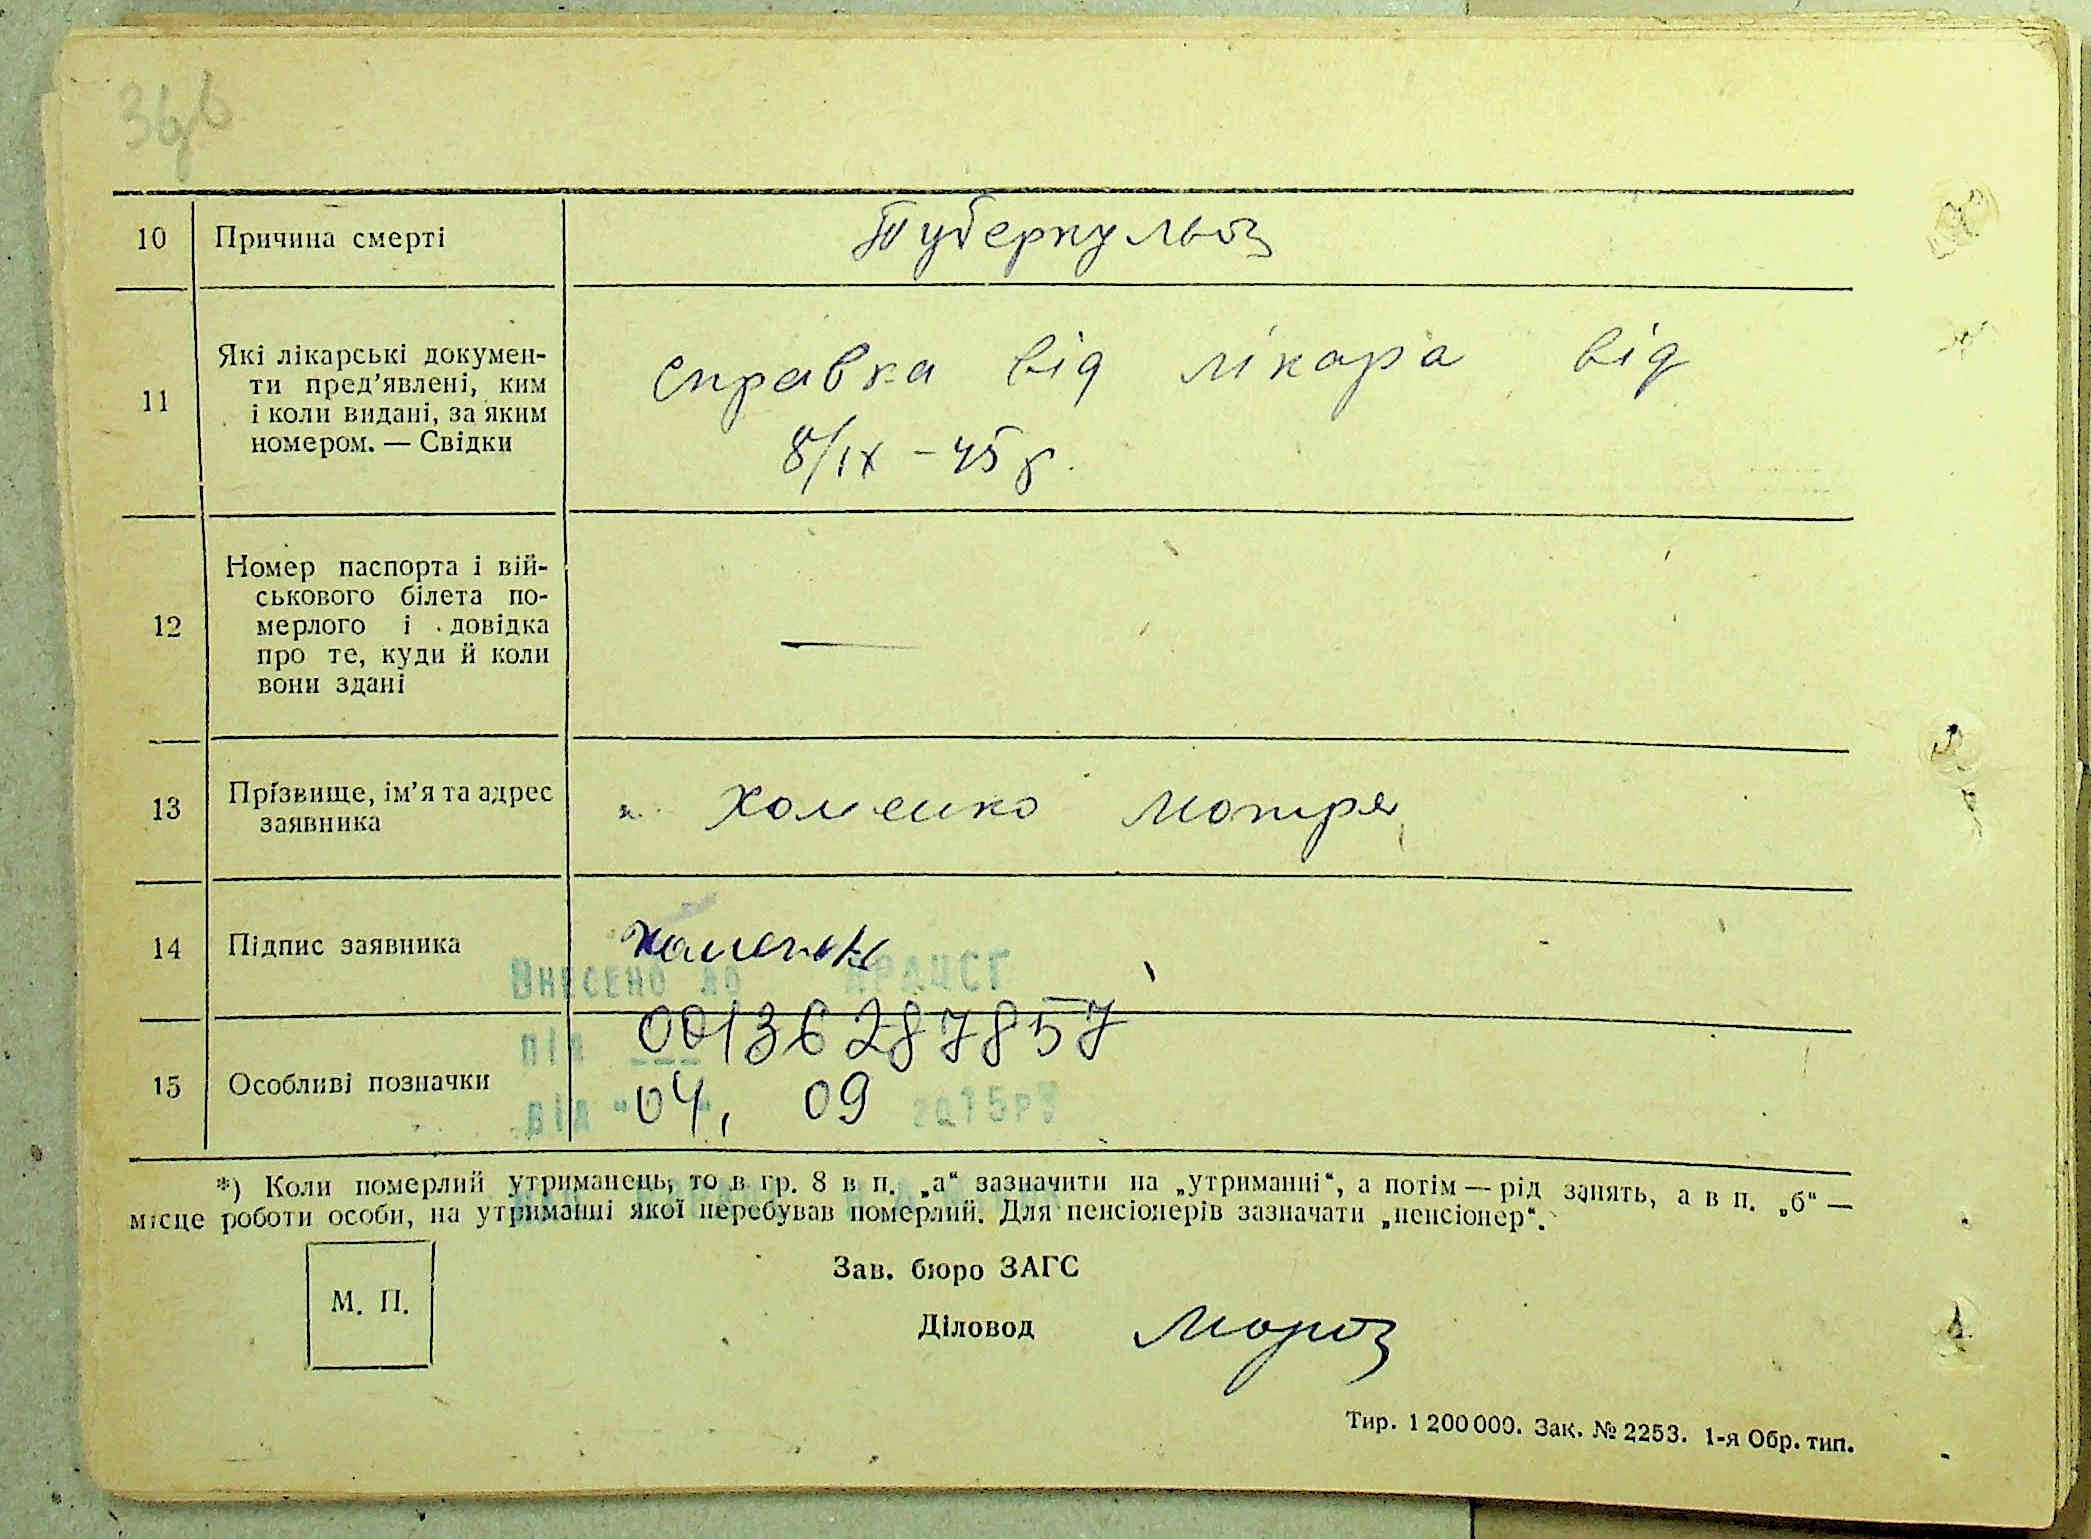 10 Причина смерті Туберкульоз
11 Які лікарські докумен-
ти пред’явлені, ким
і коли видані, за яким
номером. — Свідки
справка від лікаря від
8/ІХ – 45 р.
12 Номер паспорта і вій-
ськового білета по-
мерлого і довідка
про те, куди й коли
вони здані
—
13 Прізвище, ім’я та адрес
заявника
Хоменко Мотря
14 Підпис заявника Хоменко
Внесено до ДРАЦСГ
15 Особливі позначки
під 00136287857
від "04" 09 2015р.
*) Коли померлий утриманець, то в гр. 8 в п. „а“ зазначити на „утриманні“, а потім — рід занять, а в п. „б“ —
місце роботи особи, на утриманні якої перебував померлий. Для пенсіонерів зазначати „пенсіонер“.
М. П.
Зав. бюро ЗАГС
Діловод Мороз
Тир. 1 200 000. Зак. № 2253. 1-я Обр. тип.